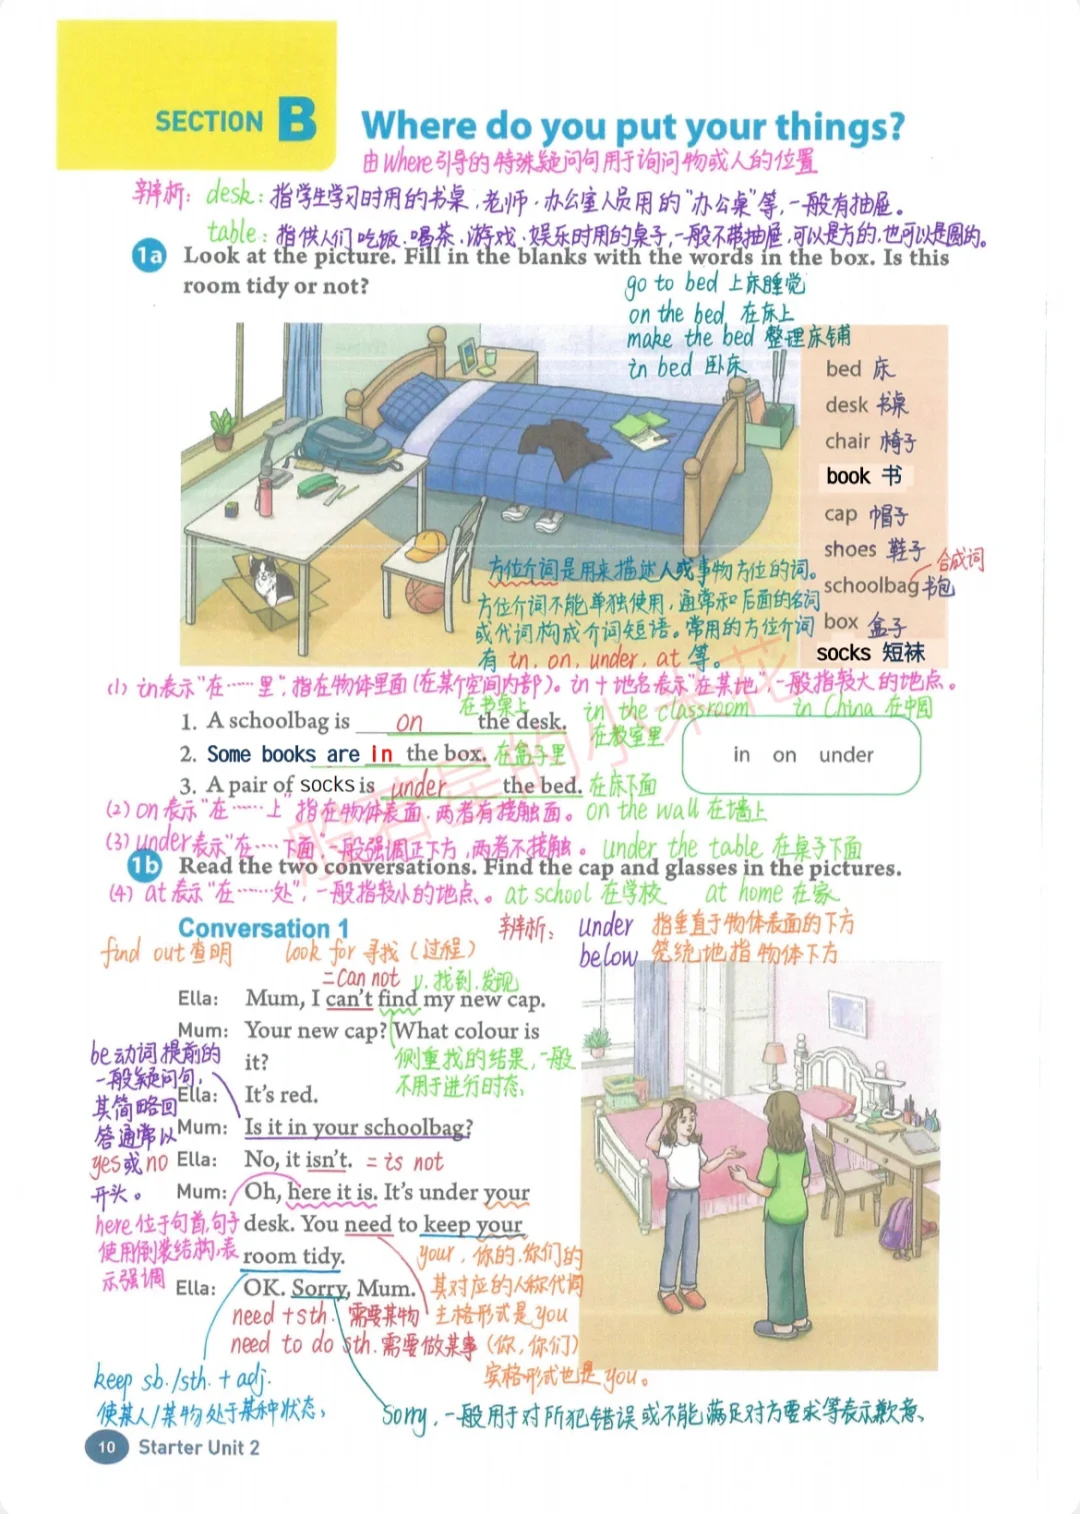 SECTION B
Where do you put your things?
由Where引导的特殊疑问句用于询问物或人的位置
辨析: desk: 指学生学习时用的书桌,老师、办公室人员用的“办公桌”等,一般有抽屉。
table: 指供人们吃饭、喝茶、游戏、娱乐时用的桌子,一般不带抽屉,可以是方的,也可以是圆的。
1a Look at the picture. Fill in the blanks with the words in the box. Is this
room tidy or not?
go to bed 上床睡觉
on the bed 在床上
make the bed 整理床铺
in bed 卧床
bed 床
desk 书桌
chair 椅子
book 书
cap 帽子
shoes 鞋子
合成词
schoolbag 书包
box 盒子
socks 短袜
方位介词是用来描述人或事物方位的词。
方位介词不能单独使用,通常和后面的名词
或代词构成介词短语。常用的方位介词
有 in, on, under, at 等。
(1) in表示“在……里”,指在物体里面(在某个空间内部)。in+地名表示“在某地”一般指较大的地点。
在书桌上 in the classroom in China 在中国
1. A schoolbag is on the desk.
在教室里
2. Some books are in the box. 在盒子里
in on under
3. A pair of socks is under the bed. 在床下面
(2) on表示“在……上”指在物体表面,两者有接触面。on the wall 在墙上
(3) under表示“在……下面”一般强调正下方,两者不接触。under the table 在桌子下面
1b Read the two conversations. Find the cap and glasses in the pictures.
(4) at表示“在……处”,一般指较小的地点。at school 在学校 at home 在家
Conversation 1
辨析: under 指垂直于物体表面的下方
below 笼统地指物体下方
find out 查明 look for 寻找(过程)
=Can not v.找到,发现
Ella: Mum, I can't find my new cap.
Mum: Your new cap? What colour is
it?
侧重找的结果,一般
不用于进行时态
be动词提前的
一般疑问句,
其简略回
答通常以
yes或no
开头。
Ella: It's red.
Mum: Is it in your schoolbag?
Ella: No, it isn't. = is not
Mum: Oh, here it is. It's under your
desk. You need to keep your
room tidy.
here位于句首,句子
使用倒装结构,表
示强调
your, 你的,你们的
其对应的人称代词
主格形式是you
(你,你们)
宾格形式也是you。
Ella: OK. Sorry, Mum.
need +sth. 需要某物
need to do sth. 需要做某事
keep sb./sth. + adj.
使某人/某物处于某种状态
Sorry, 一般用于对所犯错误或不能满足对方要求等表示歉意
10 Starter Unit 2